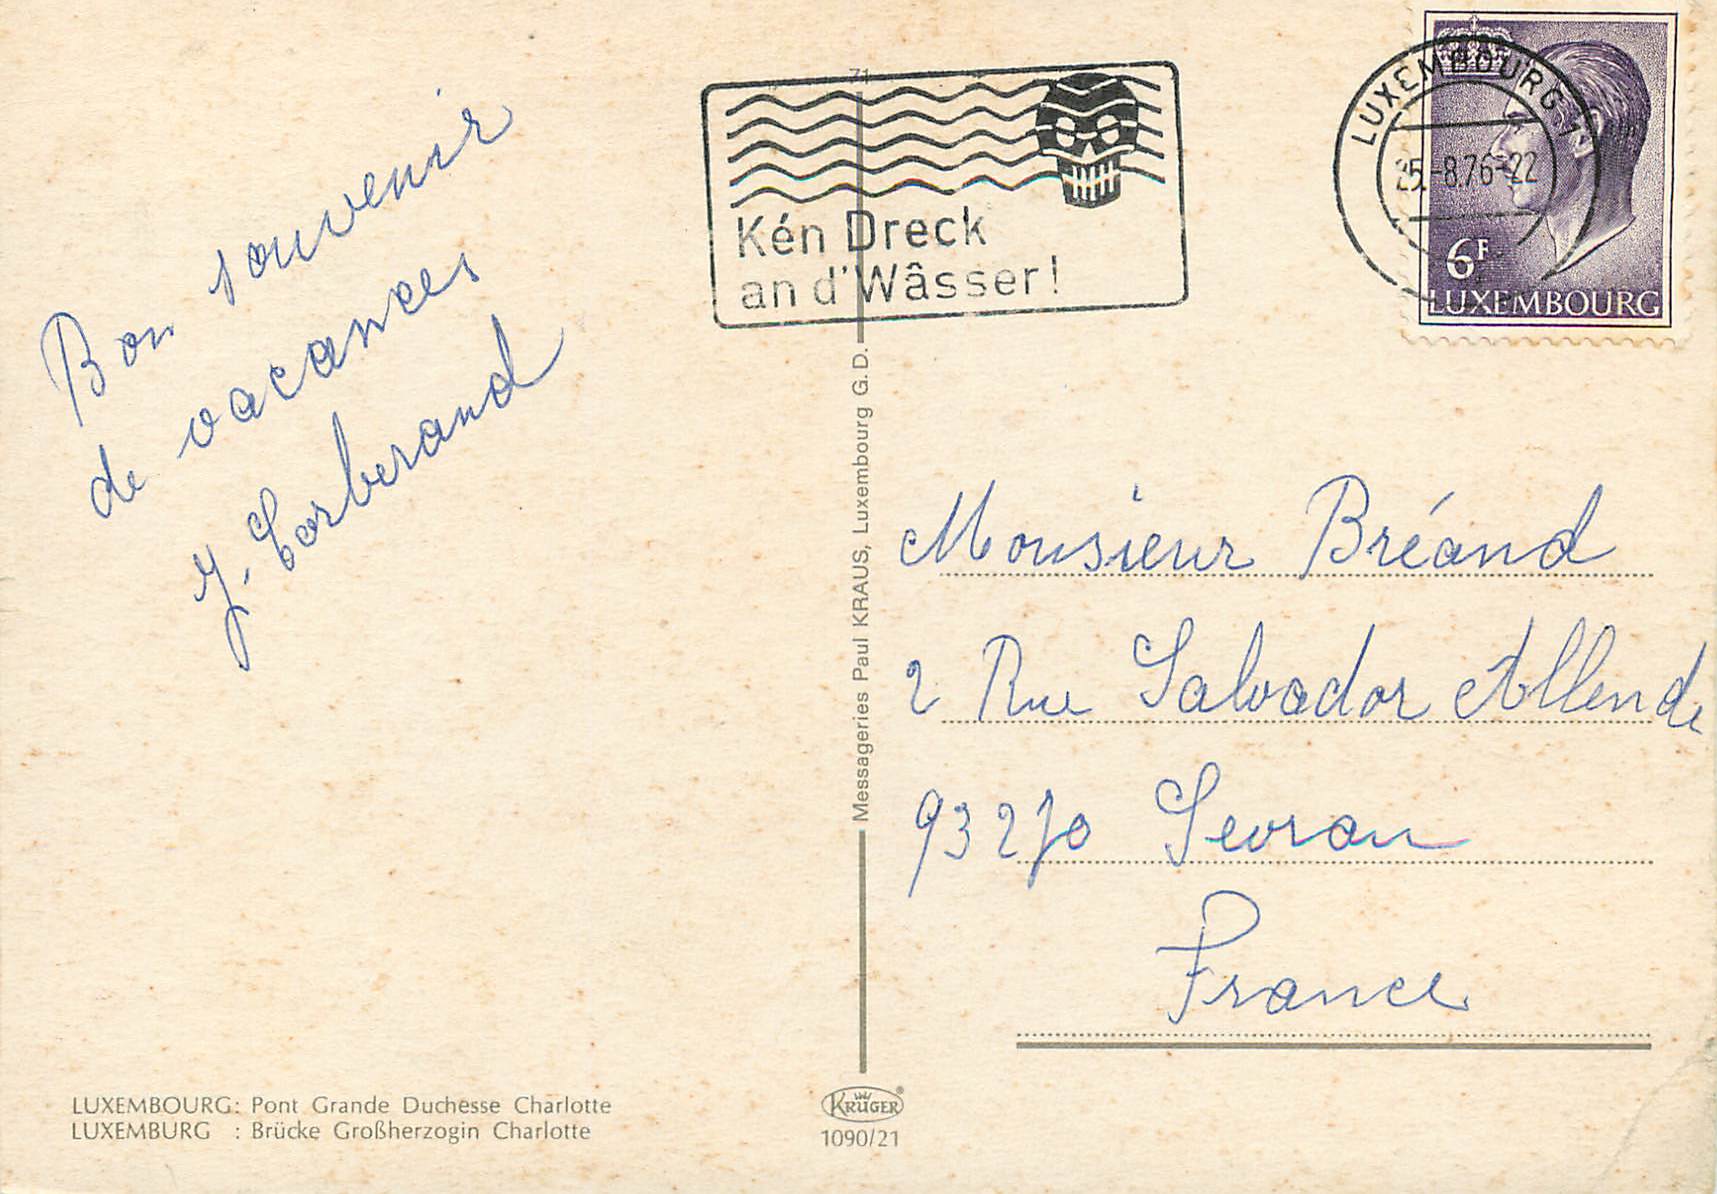 Bon souvenir
de vacances
J. Corberand
71
Kén Dreck
an d'Wâsser!
LUXEMBOURG 1
25.-8.76-22
6F
LUXEMBOURG
Messageries Paul KRAUS, Luxembourg G.D.
Monsieur Bréand
2 Rue Salvador Allende
93270 Sevran
France
LUXEMBOURG: Pont Grande Duchesse Charlotte
LUXEMBURG : Brücke Großherzogin Charlotte
KRÜGER®
1090/21